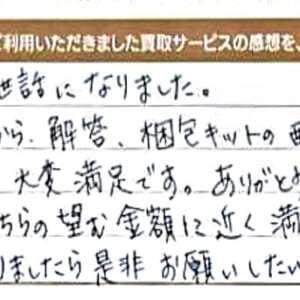 ご利用いただきました買取サービスの感想を、
世話になりました。
から、解答、梱包キットの
大変満足です。ありがと
ちらの望む金額に近く満
りましたら是非お願いしたい